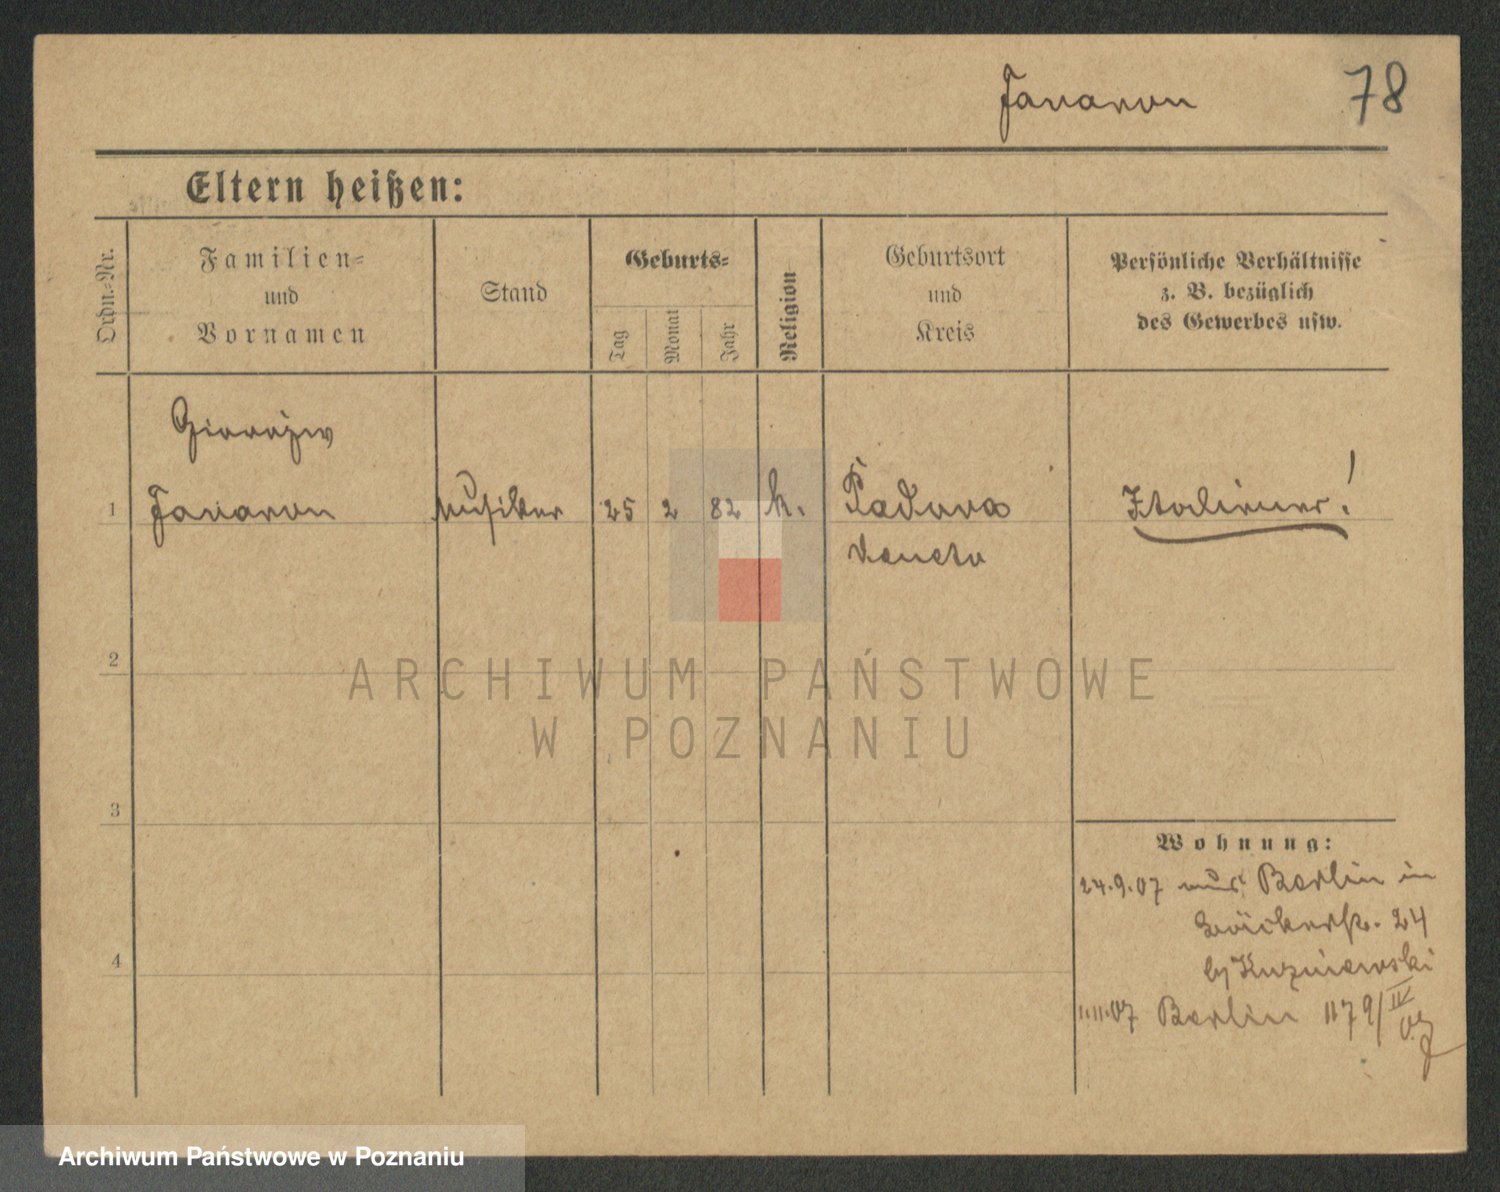 Favaron 78
Eltern heißen:
Ordn.-Nr.
Familien-
und
Vornamen
Stand
Geburts-
Tag
Monat
Jahr
Religion
Geburtsort
und
Kreis
Persönliche Verhältnisse
z. B. bezüglich
des Gewerbes usw.
1 Favaron Musiker 25 2 82 k. Padova Italiener!
Veneto
2
ARCHIWUM PAŃSTWOWE
W POZNANIU
3
Wohnung:
24.9.07 aus Berlin in
Bäckerstr. 24
4
1.11.07 Berlin 1179/IV
07
Archiwum Państwowe w Poznaniu